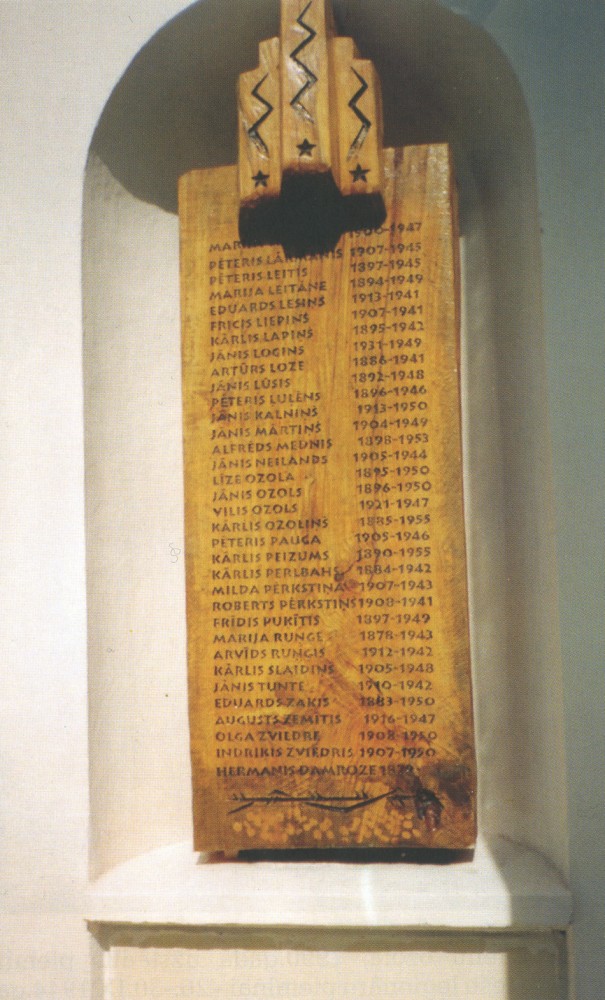 1900-1947
PĒTERIS LĀRMANIS 1907-1945
PĒTERIS LEITIS 1897-1945
MARIJA LEITĀNE 1894-1949
EDUARDS LESIŅŠ 1913-1941
FRICIS LIEPIŅŠ 1907-1941
KĀRLIS LAPIŅŠ 1895-1942
JĀNIS LOGINS 1931-1949
ARTŪRS LOZE 1886-1941
JĀNIS LŪSIS 1892-1948
PĒTERIS LULĒNS 1896-1946
JĀNIS KALNIŅŠ 1913-1950
JĀNIS MĀRTIŅŠ 1904-1949
ALFRĒDS MEDNIS 1898-1953
JĀNIS NEILANDS 1905-1944
LĪZE OZOLA 1895-1950
JĀNIS OZOLS 1896-1950
VILIS OZOLS 1921-1947
KĀRLIS OZOLIŅŠ 1885-1955
PĒTERIS PAUGA 1905-1946
KĀRLIS PEIZUMS 1890-1955
KĀRLIS PĒRLBAHS 1884-1942
MILDA PĒRKSTIŅA 1907-1943
ROBERTS PĒRKSTIŅŠ 1908-1941
FRĪDIS PUKĪTIS 1897-1949
MARIJA RUNGE 1878-1943
ARVĪDS RUŅĢIS 1912-1942
KĀRLIS SLAIDIŅŠ 1905-1948
JĀNIS TUNTE 1910-1942
EDUARDS ZAĶIS 1883-1950
AUGUSTS ZEMĪTIS 1916-1947
OLGA ZVIEDRE 1908-1950
INDRIĶIS ZVIEDRIS 1907-1950
HERMANIS DAMROZE